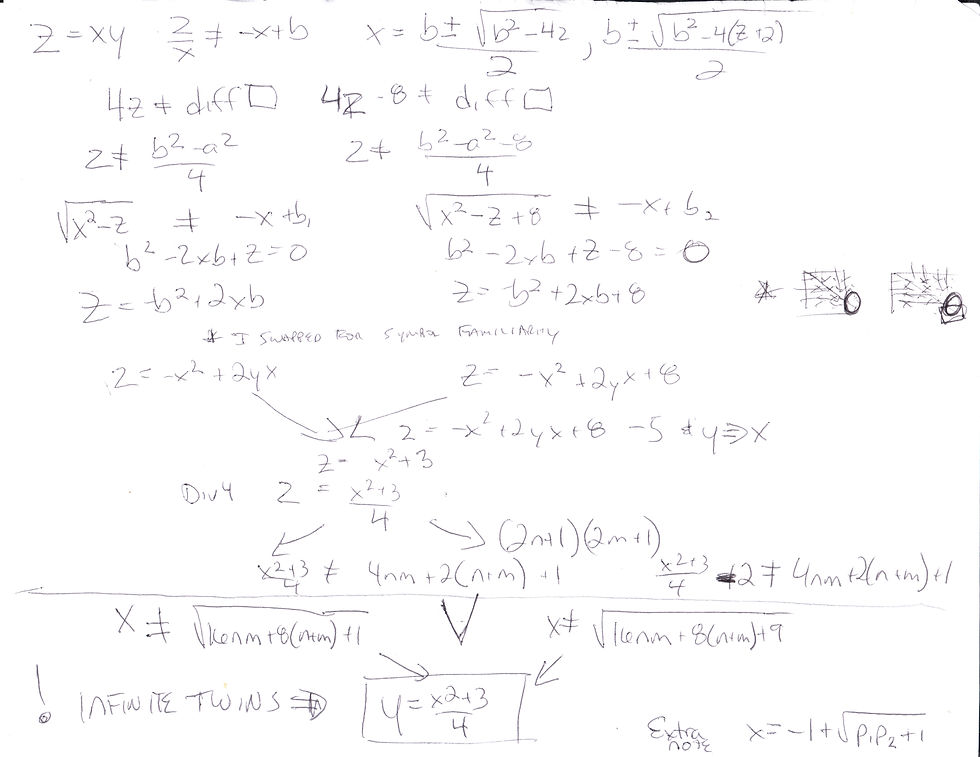 Z = xy   z/x ≠ -x+b   x = (b ± √(b²-4z))/2 , (b ± √(b²-4(z+2)))/2
4z ≠ diff □   4z-8 ≠ diff □
z ≠ (b²-a²)/4   z ≠ (b²-a²-8)/4
√(x²-z) ≠ -x+b₁   √(x²-z+8) ≠ -x+b₂
b²-2xb+z=0   b²-2xb+z-8=0
z = -b²+2xb   z = -b²+2xb+8   *
* I SWAPPED FOR SYMBOL FAMILIARITY
z = -x²+2yx   z = -x²+2yx+8
z = -x²+2yx+8 -5 & y⇒x
z = x²+3
Div 4   z = (x²+3)/4
(2n+1)(2m+1)
(x²+3)/4 ≠ 4nm+2(n+m)+1   (x²+3)/4 +2 ≠ 4nm+2(n+m)+1
x ≠ √(16nm+8(n+m)+1)   x ≠ √(16nm+8(n+m)+9)
! INFINITE TWINS ⇒ y = (x²+3)/4
Extra note   x = -1+√(p₁p₂+1)